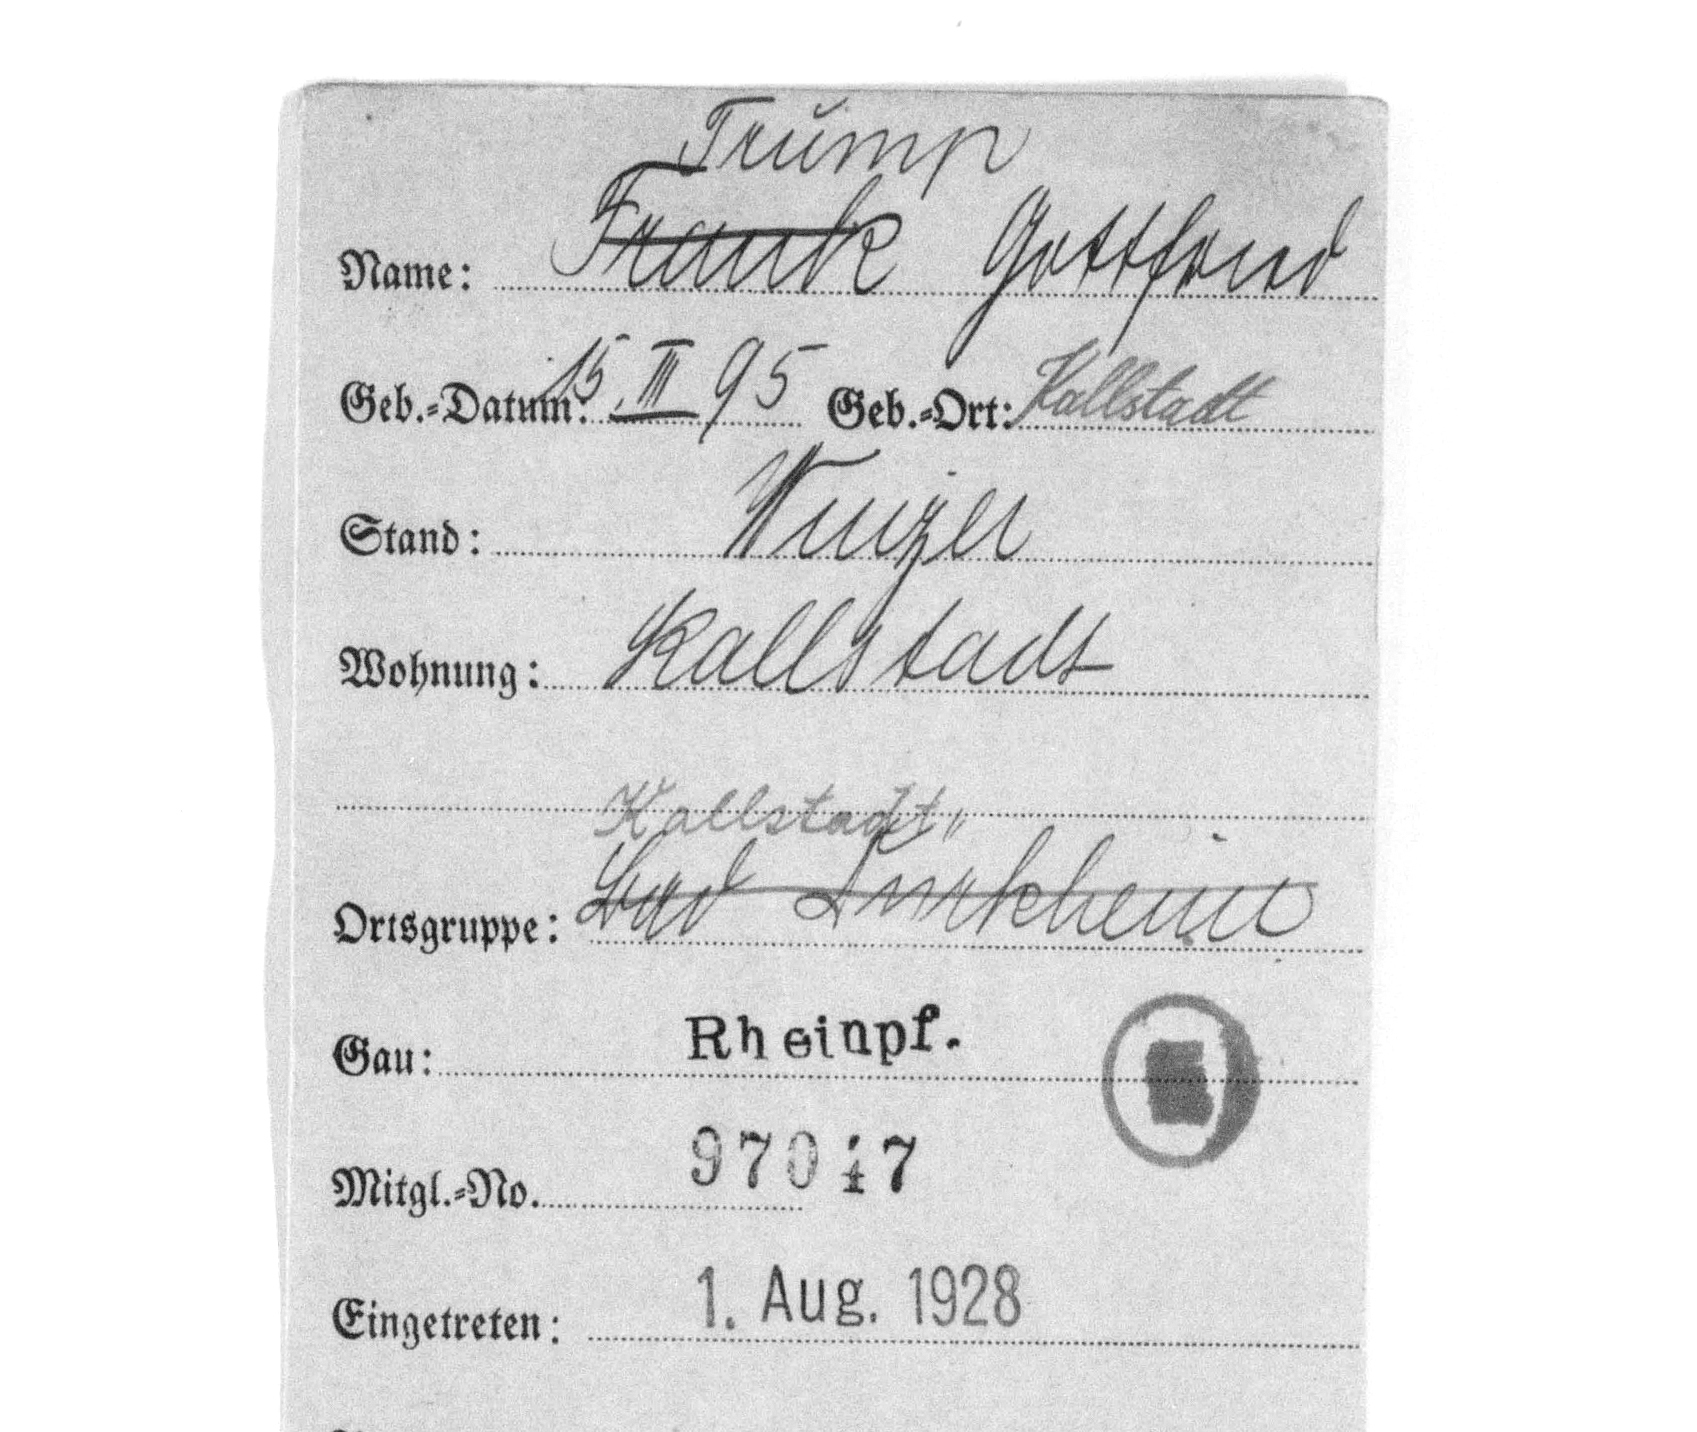 Trump
Name: Frank Gottfried
Geb.-Datum: 15. III 95 Geb.-Ort: Kallstadt
Stand: Winzer
Wohnung: Kallstadt
Kallstadt
Ortsgruppe: Bad Dürkheim
Gau: Rheinpf.
Mitgl.-No. 97017
Eingetreten: 1. Aug. 1928